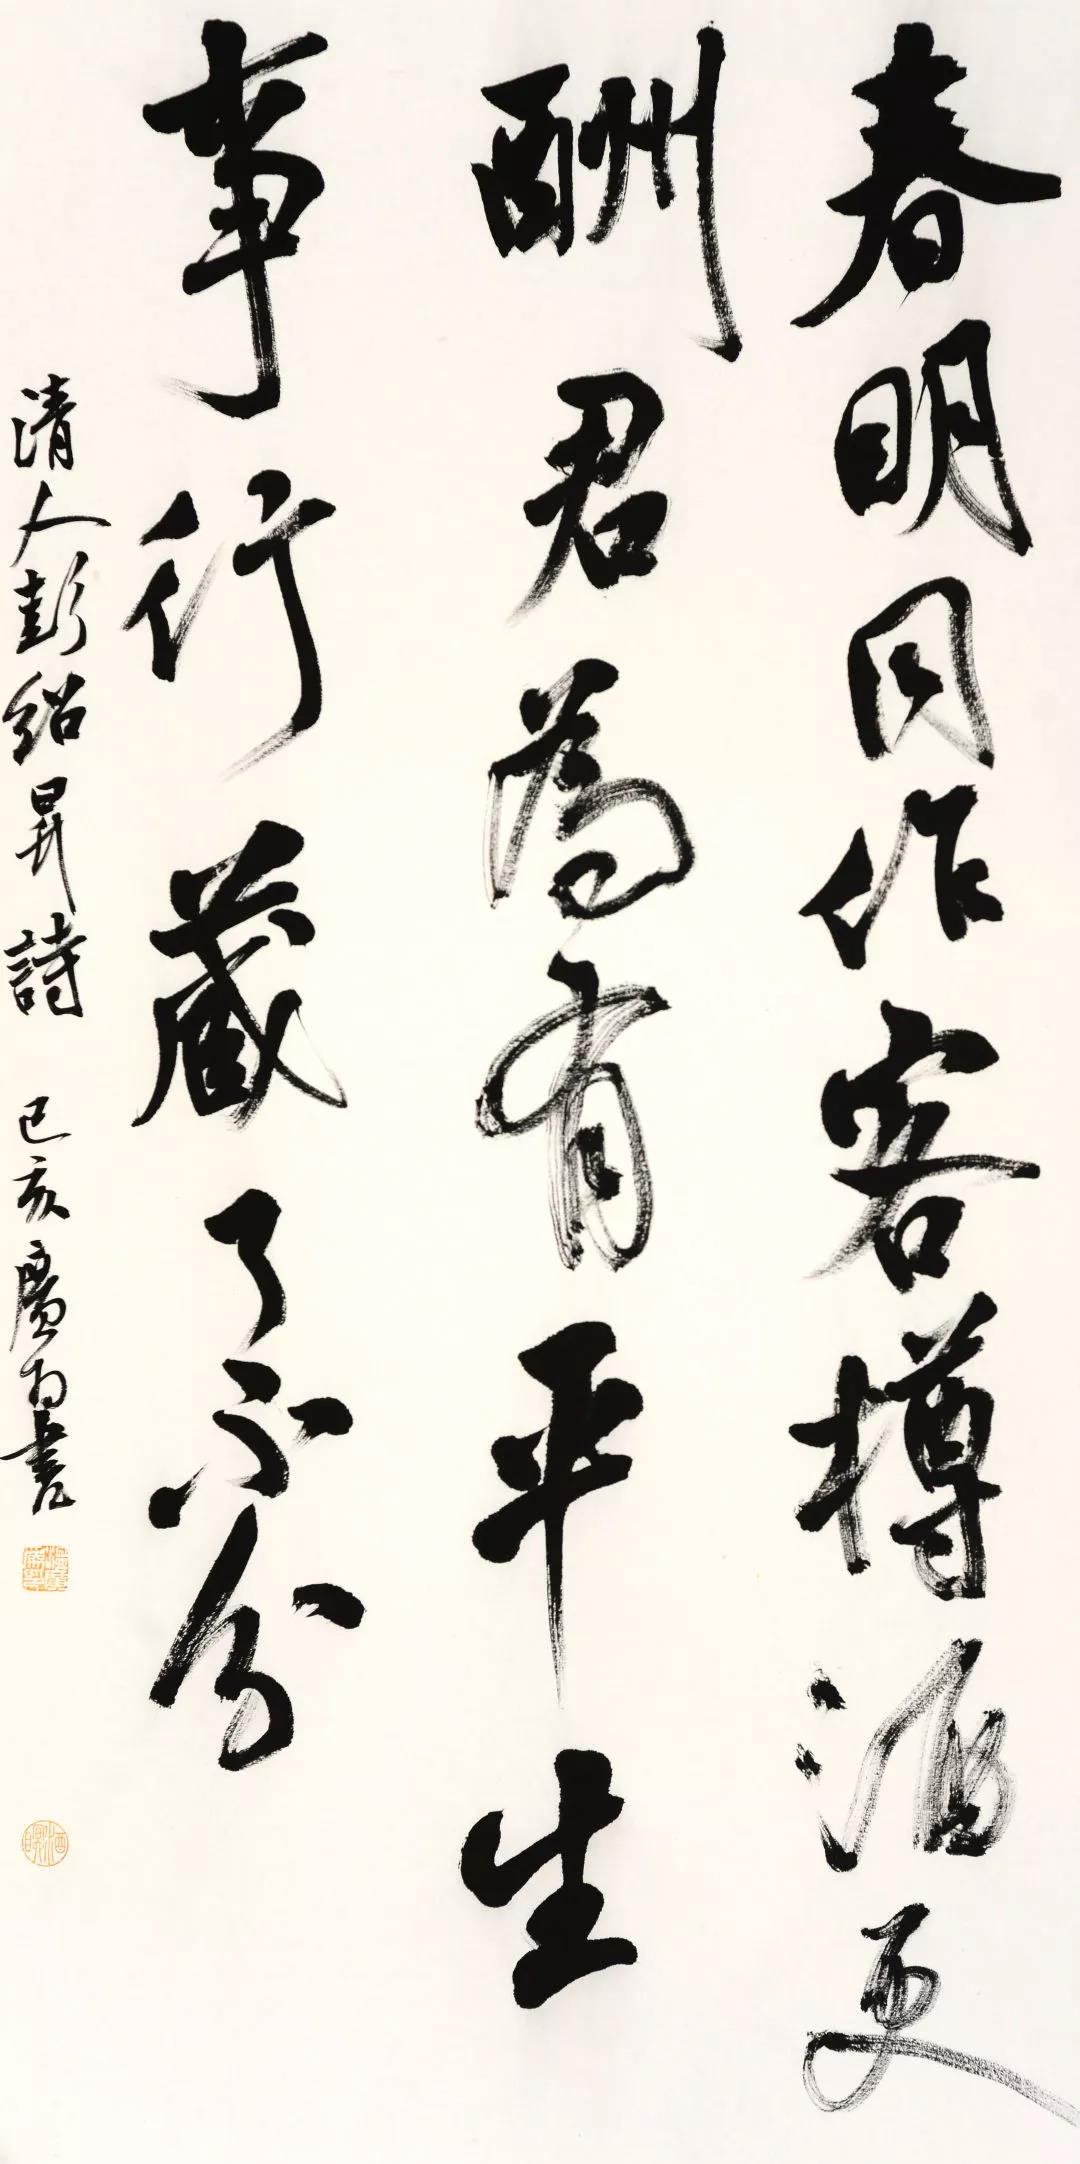 春明同作客樽酒更
酬君為有平生
事行藏了不分
清人彭紹昇詩 己亥廣西書